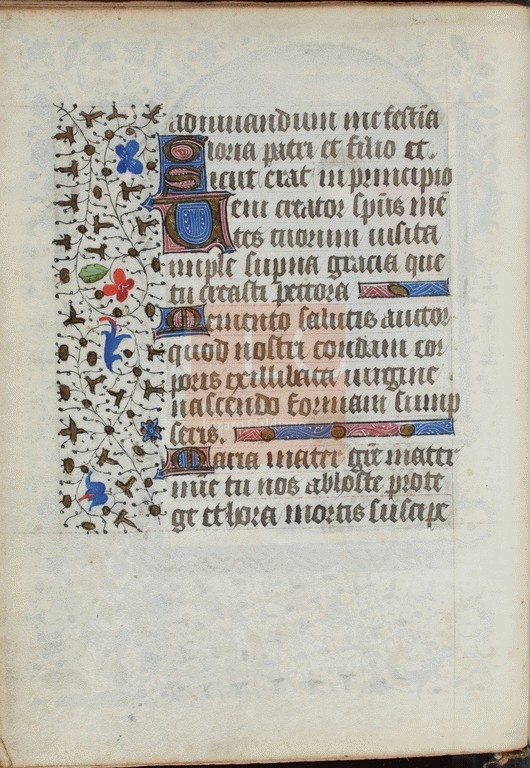 adiuuandum me festīa
Gloria patri et filio et.
Sicut erat in principio
Veni creator sp̄us mē
tes tuorum uisita
imple sup̄na gracia que
tu creasti pectora
Memento salutis auctor
quod nostri condam cor
poris exillibata uirgine
nascendo formam sump
seris.
Maria mater gr̄e mater
mīe tu nos ab hoste prote
ge et hora mortis suscipe